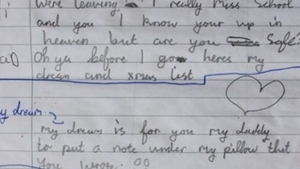 were leaving I really miss School
and you I know your up in
heaven but are you Safe?
Oh ya before I go heres my
dream and xmas list
my dream
my dream is for you my daddy
to put a note under my pillow that